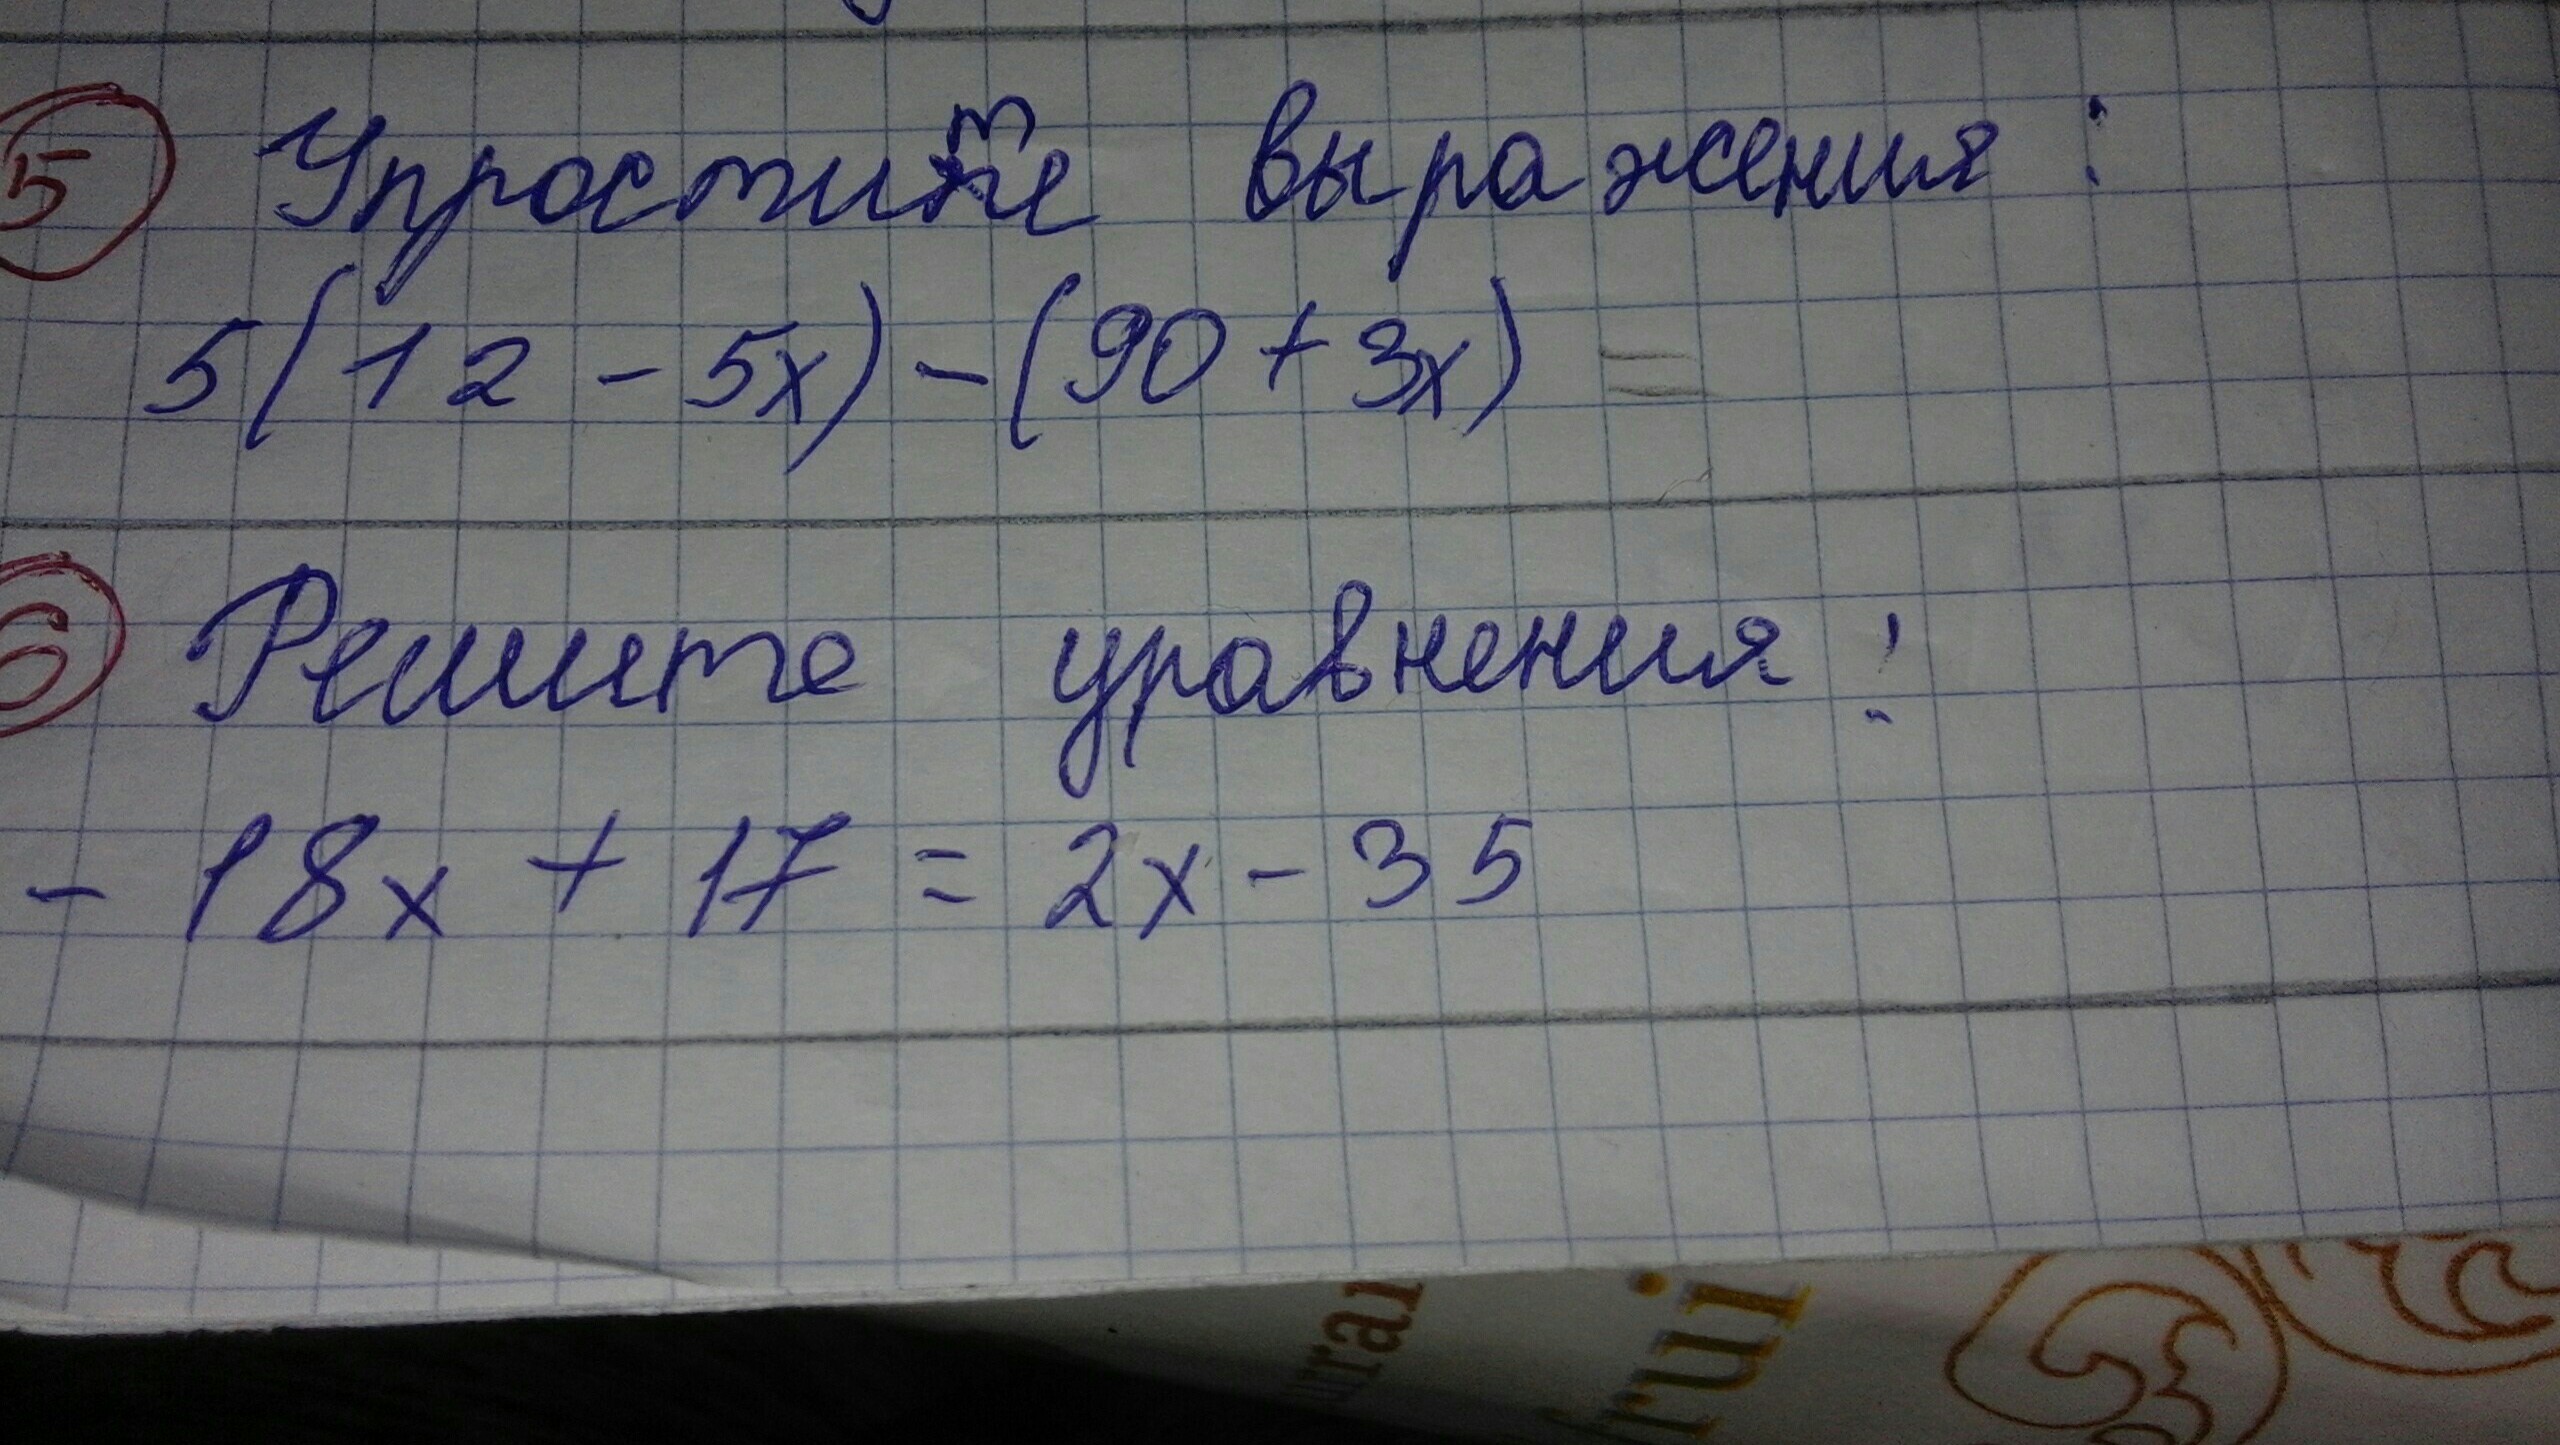 5 Упростите выражения:
5(12 - 5x) - (90 + 3x) =
6 Решите уравнения:
- 18x + 17 = 2x - 35
rui